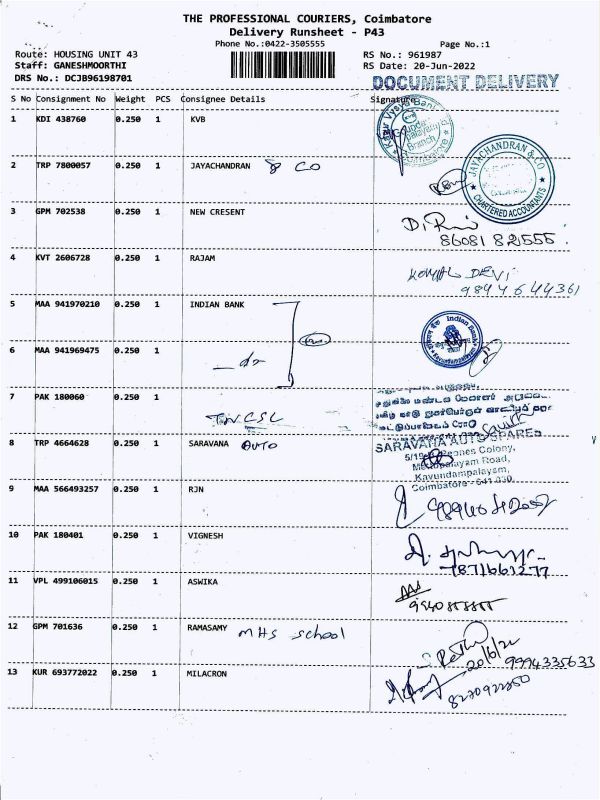 THE PROFESSIONAL COURIERS, Coimbatore
Delivery Runsheet - P43
Phone No.:0422-3505555
Page No.:1
Route: HOUSING UNIT 43
RS No.: 961987
Staff: GANESHMOORTHI
RS Date: 20-Jun-2022
DRS No.: DCJB96198701
DOCUMENT DELIVERY
S No Consignment No Weight PCS Consignee Details Signature
1 KDI 438760 0.250 1 KVB
Branch
2 TRP 7800057 0.250 1 JAYACHANDRAN & CO
JAYACHANDRAN & CO
CHARTERED ACCOUNTANTS
3 GPM 702538 0.250 1 NEW CRESENT
86081 82555
4 KVT 2606728 0.250 1 RAJAM
KOMAL DEVI
9844644361
5 MAA 941970210 0.250 1 INDIAN BANK
Indian Bank
6 MAA 941969475 0.250 1
7 PAK 180060 0.250 1
TNCSC
8 TRP 4664628 0.250 1 SARAVANA AUTO
SARAVANA AUTO SPARES
Colony,
Mettupalayam Road,
Kavundampalayam,
Coimbatore - 641 030.
9 MAA 566493257 0.250 1 RJN
10 PAK 180401 0.250 1 VIGNESH
7871661277
11 VPL 499106015 0.250 1 ASWIKA
12 GPM 701636 0.250 1 RAMASAMY MHS school
20/6/22
9994335633
13 KUR 693772022 0.250 1 MILACRON
8220922850